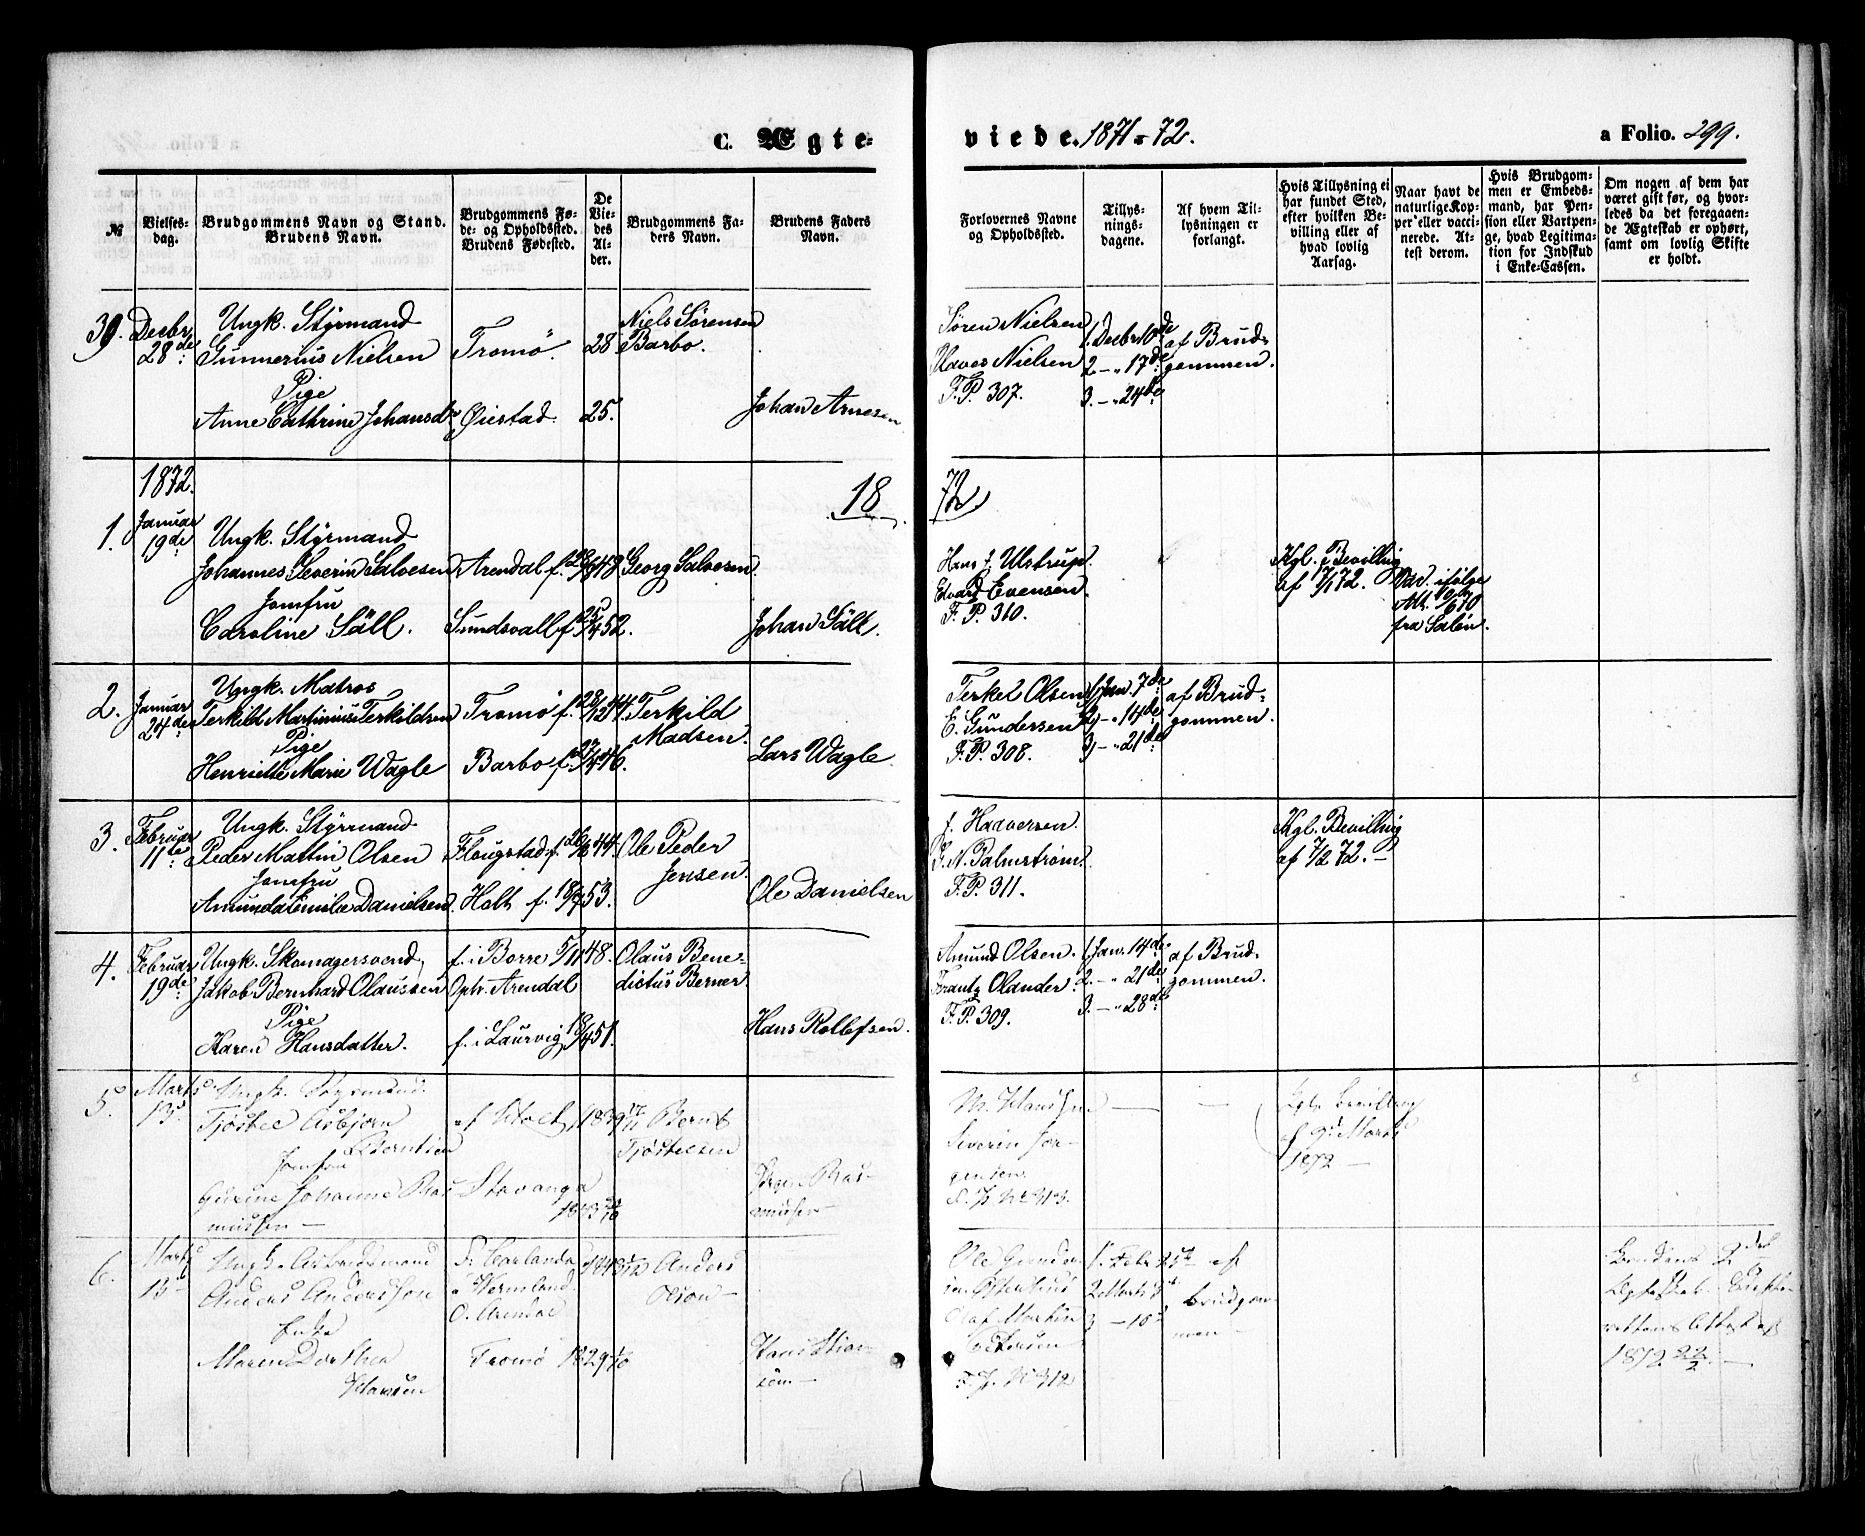 C. Ægte-
viede. 1871-72.
a Folio. 299.
№
Vielses-
dag.
Brudgommens Navn og Stand.
Brudens Navn.
Brudgommens Fø-
de- og Opholdssted.
Brudens Fødested.
De
Vie-
des
Al-
der.
Brudgommens Fa-
ders Navn.
Brudens Faders
Navn.
Forlovernes Navne
og Opholdssted.
Tillys-
nings-
dagene.
Af hvem Til-
lysningen er
forlangt.
Hvis Tillysning ei
har fundet Sted,
efter hvilken Be-
villing eller af
hvad lovlig
Aarsag.
Naar havt de
naturlige Kop-
per eller vacci-
nerede. At-
test derom.
Hvis Brudgom-
men er Embeds-
mand, har Pen-
sion eller Vartpen-
ge, hvad Legitima-
tion for Indskud
i Enke-Cassen.
Om nogen af dem har
været gift før, og hvor-
ledes da det foregaaen-
de Ægteskab er ophørt,
samt om lovlig Skifte
er holdt.
39. Decbr.
28de
Ungk. Styrmand
Gunnerius Nielsen
Pige
Anne Cathrine Johansd.
Tromø.
Øiestad.
28
25.
Niels Sørensen
Barbo.
Johan Arnesen
Søren Nielsen
Nielsen
F.P. 307.
1. Decbr 10de
2 - " 17de
3. - " 24de
af Brud-
gommen.
1872.
18
72
1. Januar
19de
Ungk. Styrmand
Johannes Severin Salvesen
Jomfru
Caroline Säll.
Arendal f. 48
Sundsvall f. 25/4 52.
Georg Salvesen.
Johan Säll.
Hans J. Ulstrup.
Edvard Evensen.
F.P. 310.
Kgl. Bevilling
af 7/1 72.
Vac. ifølge
Att.
fra Salén.
2. Januar
24de
Ungk. Matros
Terkild Martinius Terkildsen
Pige
Henriette Marie Wagle
Tromø f. 28/12 44.
Barbo f. 27/4 46.
Terkild
Madsen.
Lars Wagle.
Terkel Olsen
E. Gundersen
F.P. 308.
1. Jan. 7de
2 - " 14de
3 - " 21de
af Brud-
gommen.
3. Februar
11te
Ungk. Styrmand
Peder Mattin Olsen
Jomfru
Amunda Emilie Danielsen.
Flougstad f. 26/6 44.
Holt f. 18/7 53.
Ole Peder
Jensen.
Ole Danielsen
J. Halversen.
N. Palmstrøm.
F.P. 311.
Kgl. Bevilling
af 7/2 72. -
4. Februar
19de
Ungk. Skomagersvend
Jakob Bernhard Olaussen
Pige
Karen Hansdatter.
f. i Borre 5/11 48.
Oph. Arendal
f. i Laurvig 18/4 51.
Olaus Bene-
dictus Berner.
Hans Rollefsen.
Amund Olsen.
Frantz Olander.
F.P. 309.
1. Jan. 14de
2. - " 21de
3. - " 28de
af Brud-
gommen.
5. Marts
13
Ungk. Styrmand
Tjøstel Asbjørn
Berntsen
Jomfru
Gurine Johanne Ras-
mussen -
f. Holt 1839 17/11
Stavanger
Bernt
Tjøstelsen
Jørgen Ras-
mussen -
M. Klausen
Severin Jør-
gensen.
F.P. № 313.
Kgl. Bevilling
af 9d Marts
1872 -
6. Marts
13
Ungk. Arbeidsmand
Anders Andersson
Enke
Maren Dorthea
Hansen
Wermland
O. Arendal
Tromø 1829
Anders
Olson -
Hans Stian-
sen -
Ole
Olaf Martin
F.P. № 312
1. Febr 25
2 Marts 3
3 - 10
af
brudgom-
men -
Brudens 2det
Ægteskab. Skifte-
rettens Attest af
1872 22/2. -